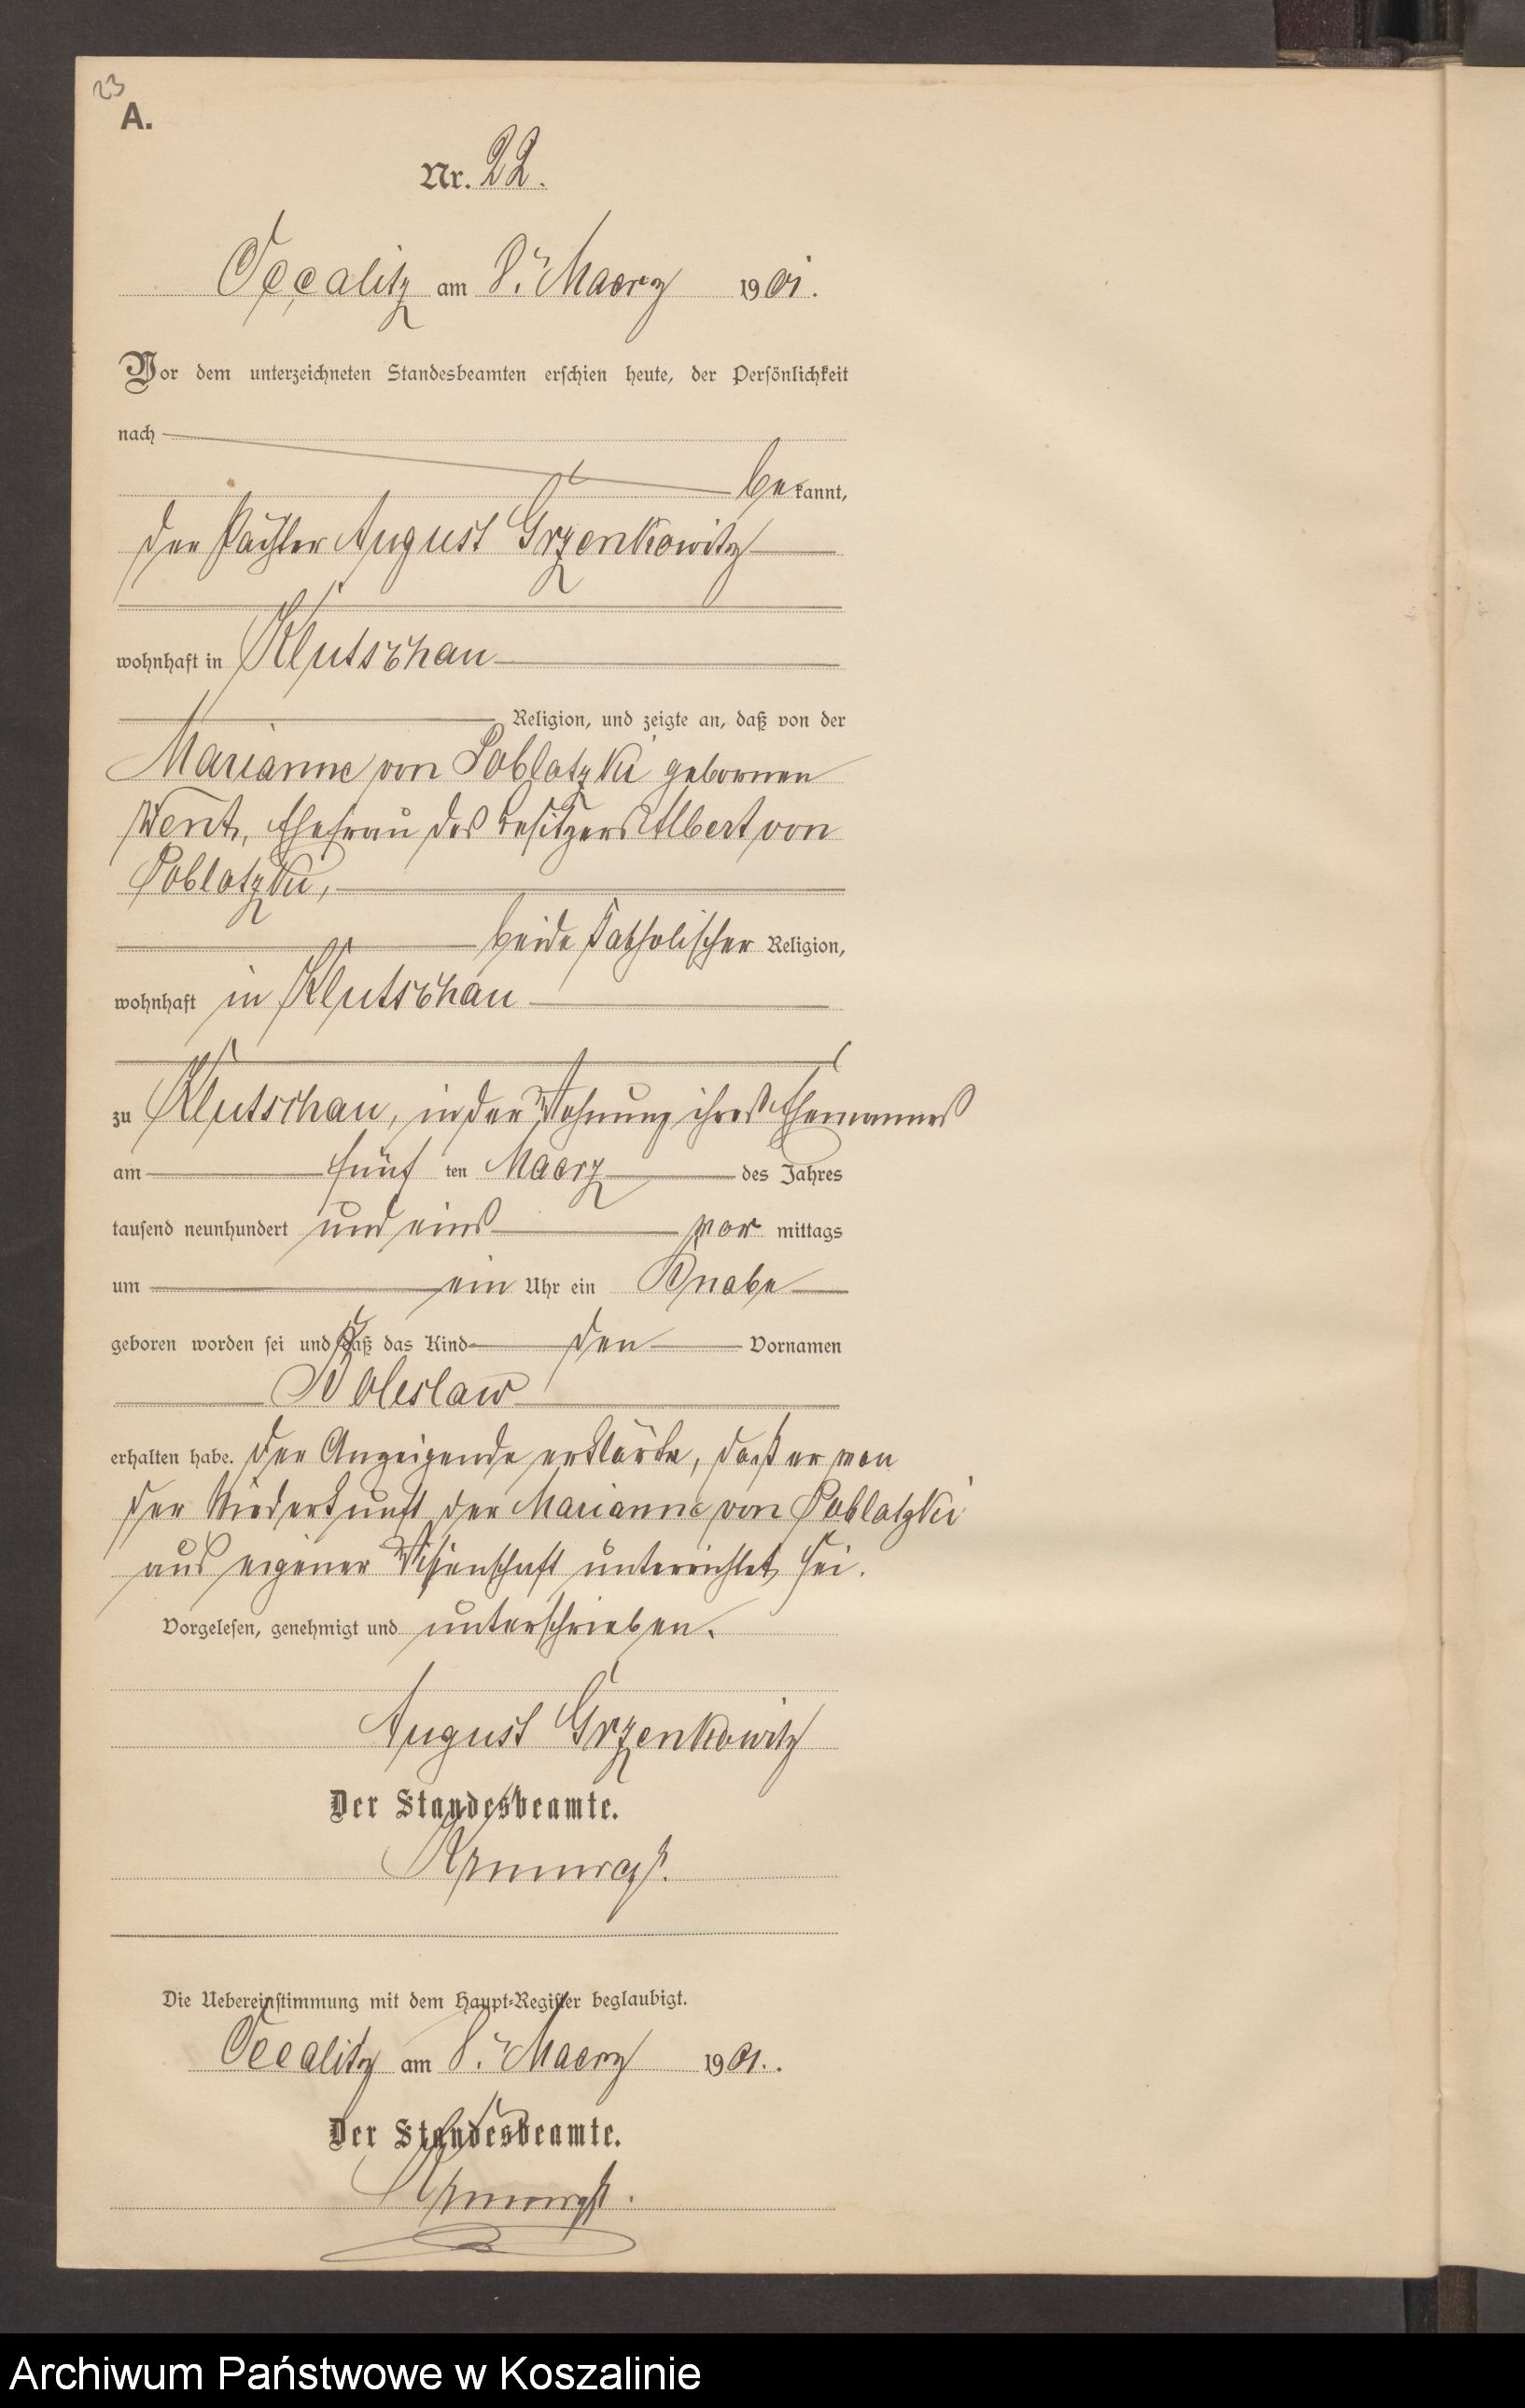 23
A.
Nr. 22.
Occalitz am 8. Maerz 1901.
Vor dem unterzeichneten Standesbeamten erschien heute, der Persönlichkeit
nach
bekannt,
der Pächter August Grzenkowitz
wohnhaft in Klutschau
Religion, und zeigte an, daß von der
Marianne von Poblotzki gebornen
Went, Ehefrau des Besitzers Albert von
Poblotzki,
beide katholischer Religion,
wohnhaft in Klutschau
zu Klutschau, in der Wohnung ihres Ehemannes
am fünf ten Maerz des Jahres
tausend neunhundert und eins vor mittags
um ein Uhr ein Knabe
geboren worden sei und daß das Kind den Vornamen
Boleslaw
erhalten habe. Der Anzeigende erklärte, daß er von
der Niederkunft der Marianne von Poblotzki
aus eigener Wissenschaft unterrichtet sei.
Vorgelesen, genehmigt und unterschrieben.
August Grzenkowitz
Der Standesbeamte.
Die Uebereinstimmung mit dem Haupt-Register beglaubigt.
Occalitz am 8. Maerz 1901.
Der Standesbeamte.
Archiwum Państwowe w Koszalinie